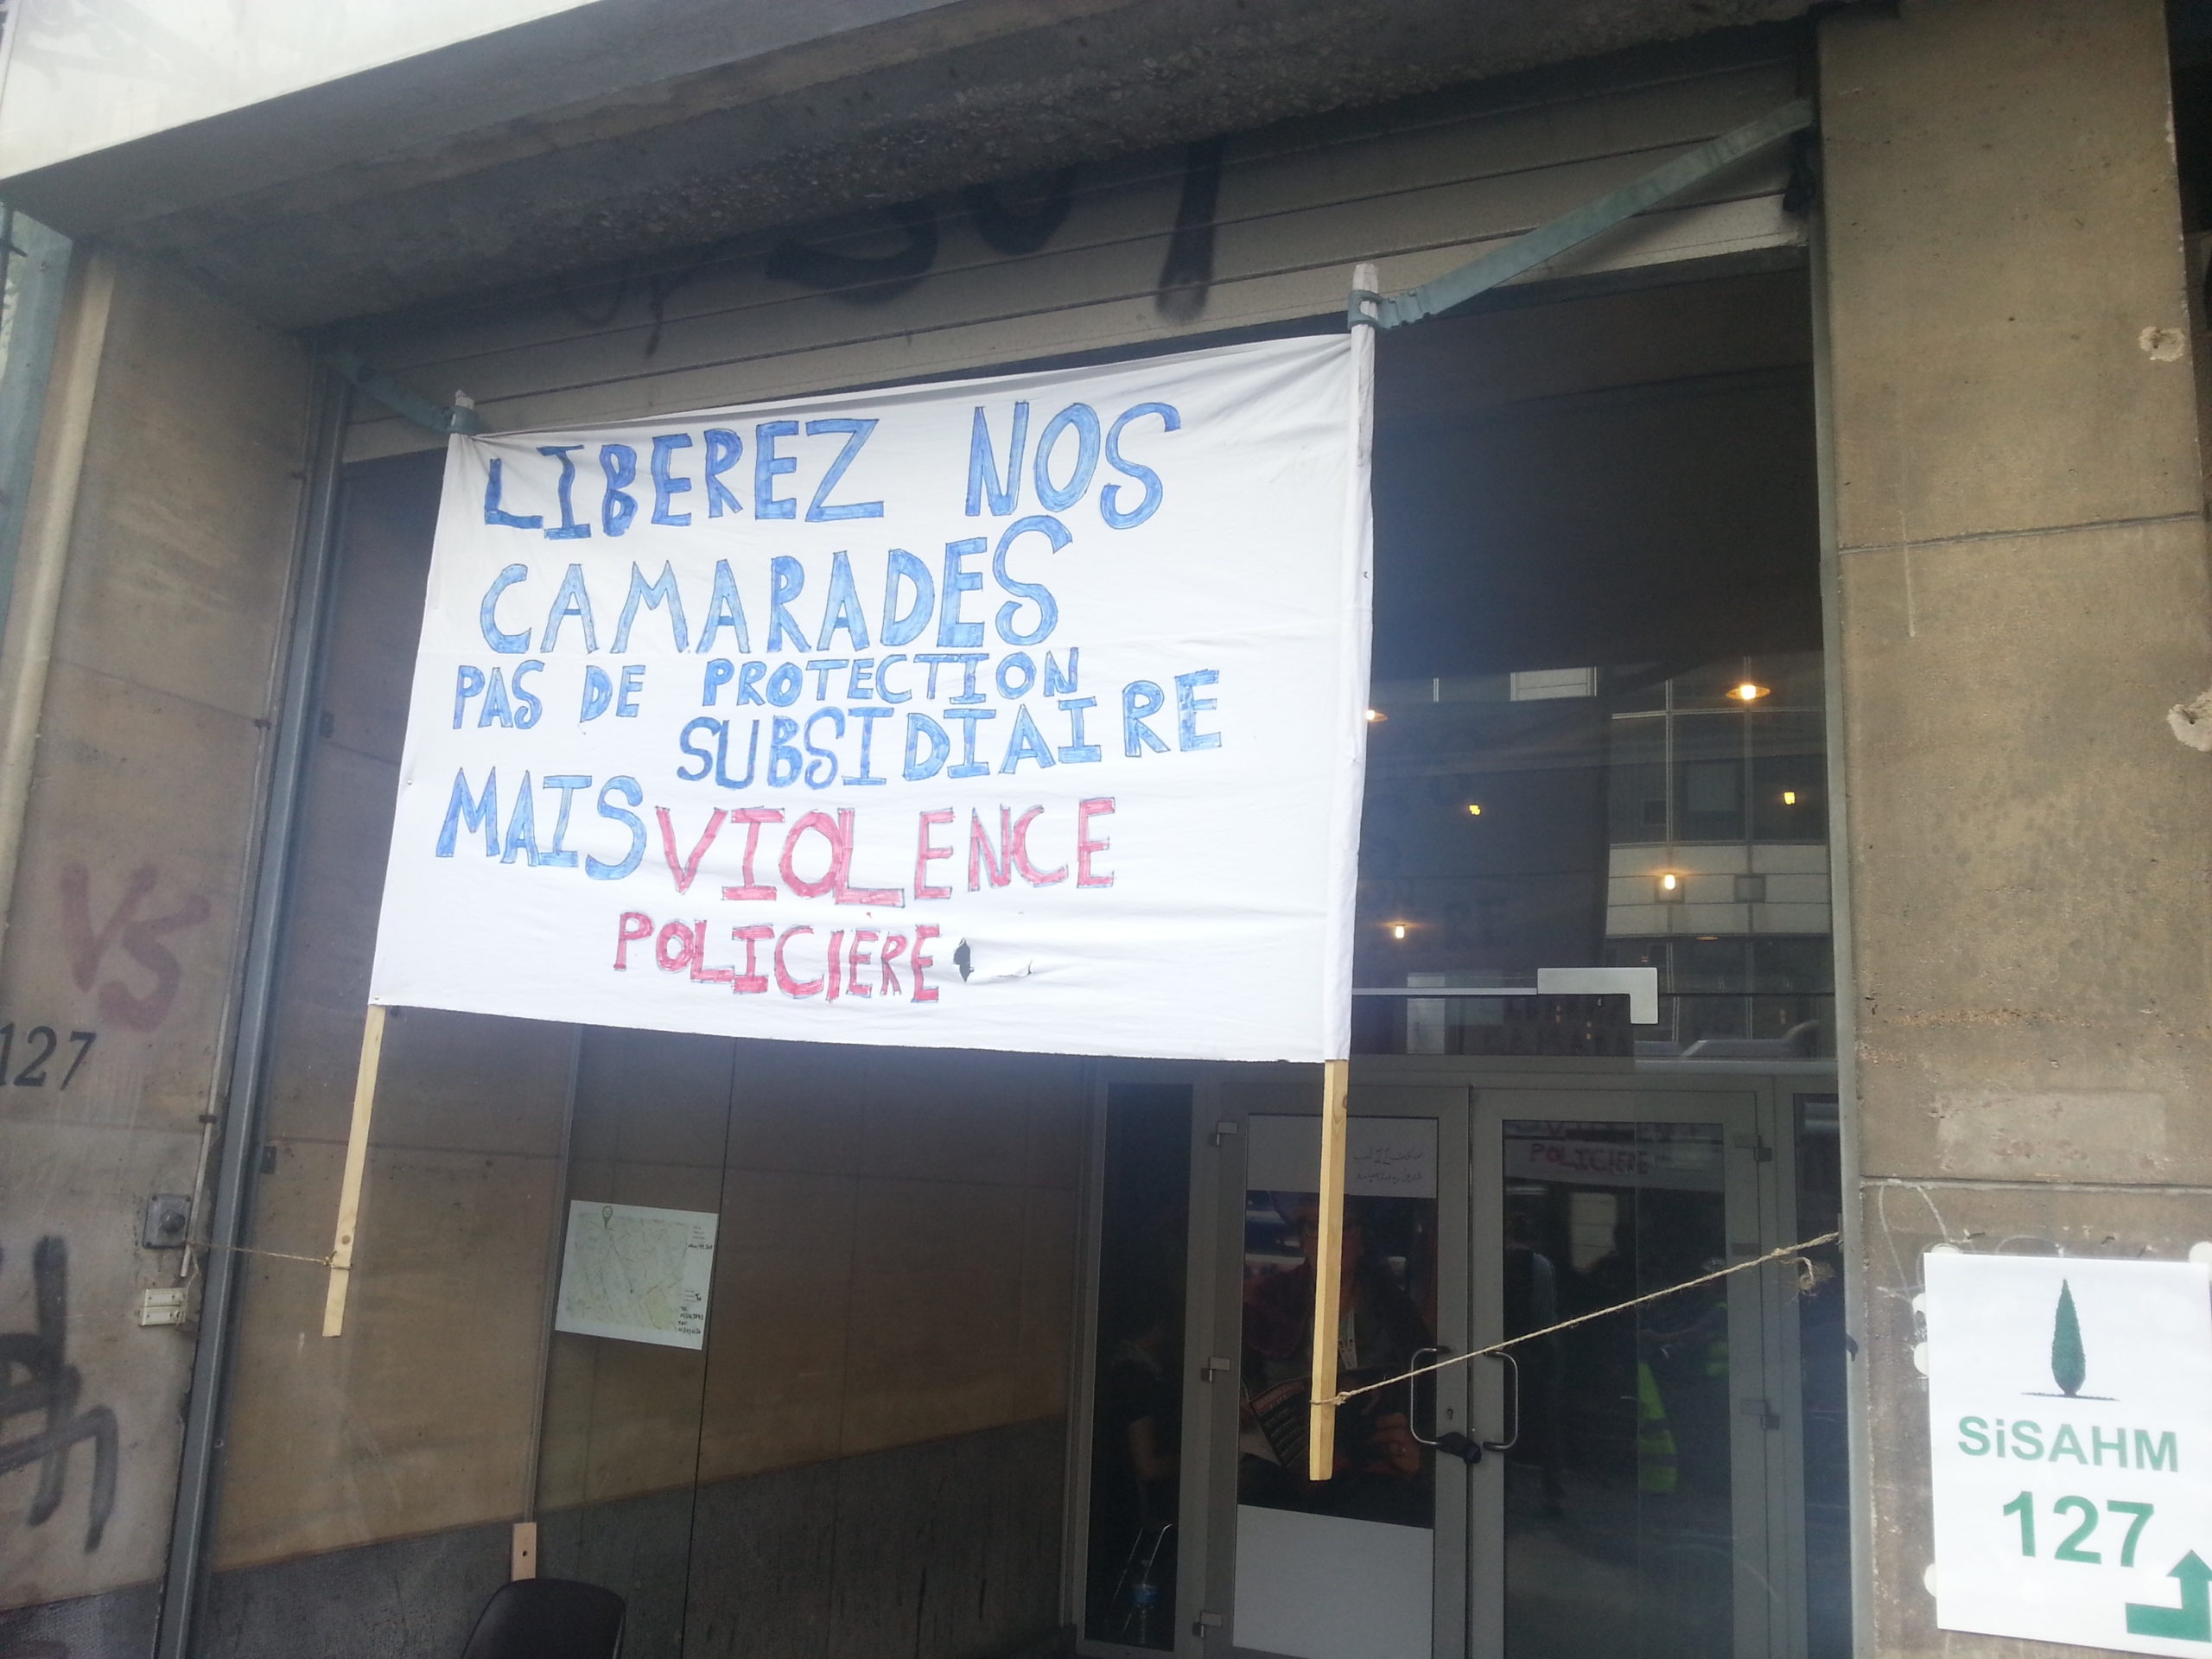 LIBEREZ NOS
CAMARADES
PAS DE PROTECTION
SUBSIDIAIRE
MAIS VIOLENCE
POLICIERE
VS
127
POLICIERE
SiSAHM
127